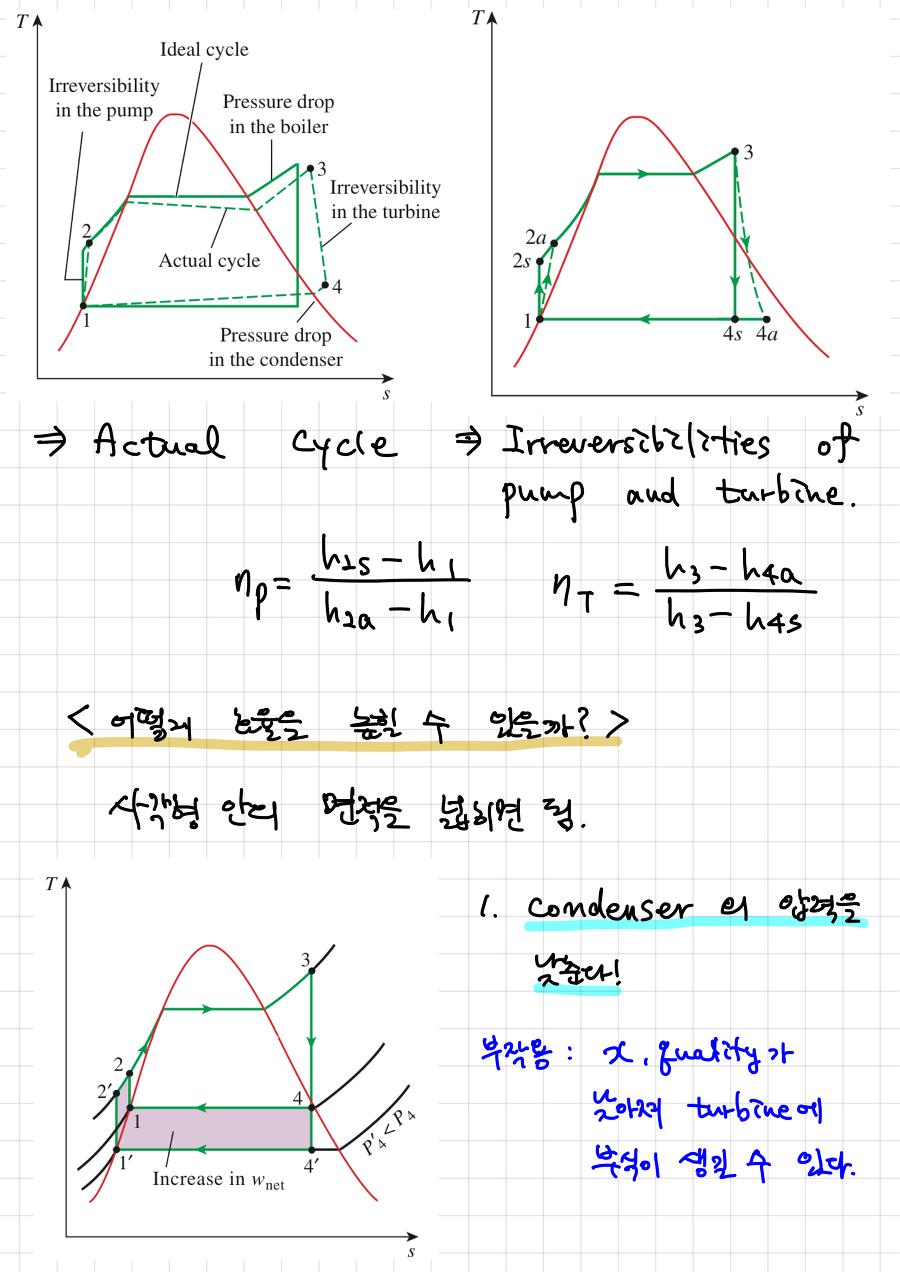 T
Ideal cycle
Irreversibility
in the pump
Pressure drop
in the boiler
3
Irreversibility
in the turbine
2
Actual cycle
4
1
Pressure drop
in the condenser
s
T
3
2a
2s
1
4s 4a
s
⇒ Actual Cycle
⇒ Irreversibilities of
pump and turbine.
ηp = (h2s − h1) / (h2a − h1)
ηT = (h3 − h4a) / (h3 − h4s)
< 어떻게 효율을 높힐 수 있을까? >
사각형 안의 면적을 넓히면 됨.
T
3
2
2′
4
1
1′
4′
P′4 < P4
Increase in wnet
s
1. Condenser 의 압력을
낮춘다!
부작용 : x, quality가
낮아져 turbine에
부식이 생길 수 있다.